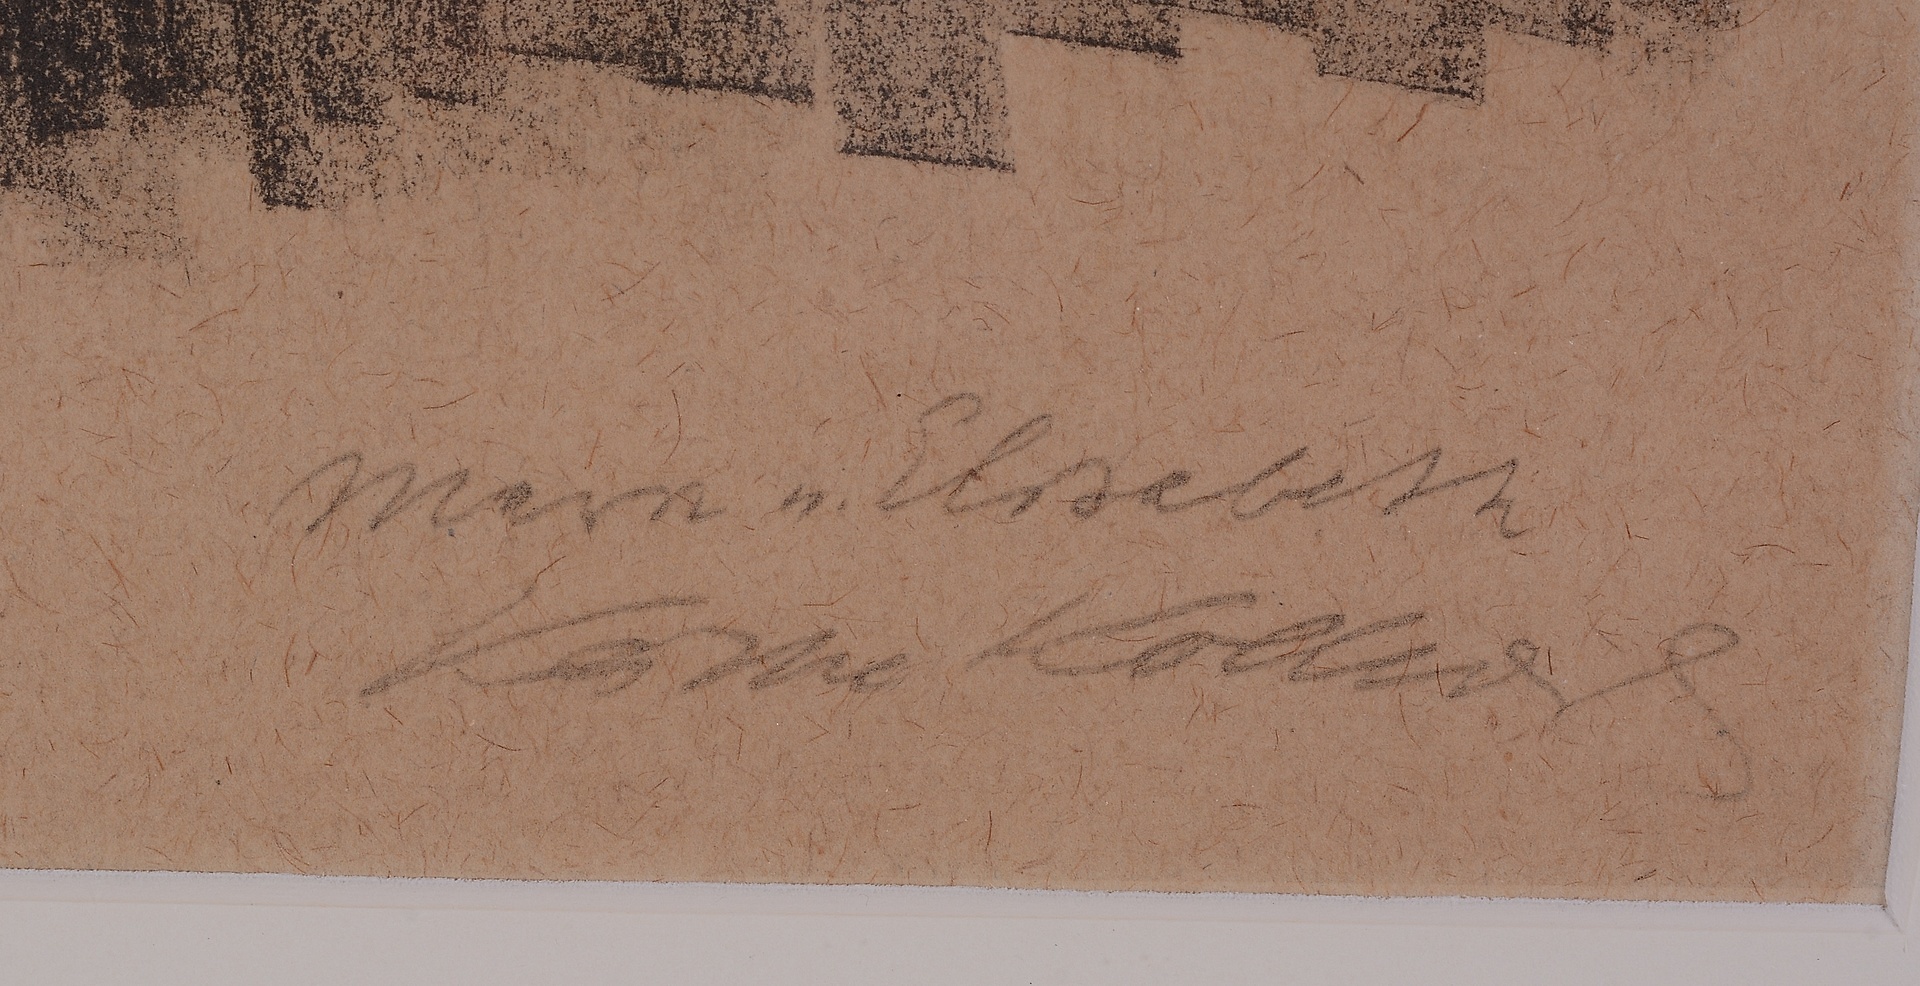 Maria u. Elisabeth
Käthe Kollwitz